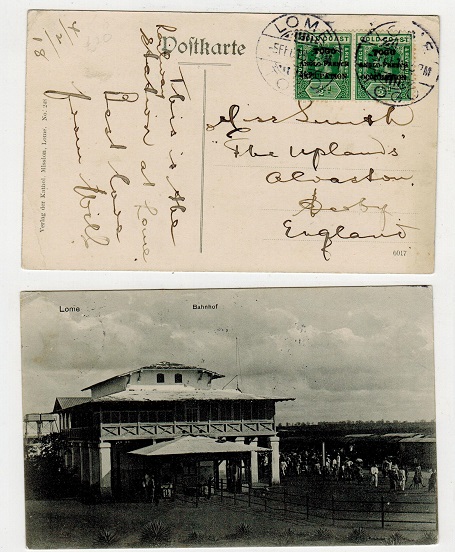 Postkarte
LOME
-5FEB
GOLD COAST
GOLD COAST
TOGO
ANGLO-FRENCH
OCCUPATION
TOGO
ANGLO-FRENCH
OCCUPATION
4/2/18
This is the
Railway station at Lome
Best love
from Will
Verlag der Kathol. Mission, Lome, No. 240
Miss Smith
"The Uplands"
Alvaston
Derby
England
6017
Lome
Bahnhof